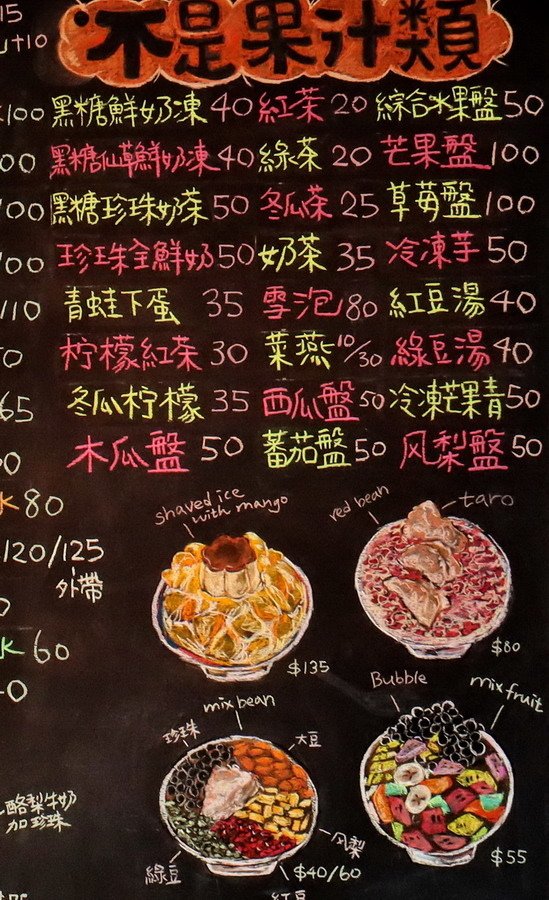 不是果汁類
15
+10
100 黑糖鮮奶凍 40 紅茶 20 綜合水果盤 50
00 黑糖仙草鮮奶凍 40 綠茶 20 芒果盤 100
100 黑糖珍珠奶茶 50 冬瓜茶 25 草莓盤 100
00 珍珠全鮮奶 50 奶茶 35 冷凍芋 50
110 青蛙下蛋 35 雪泡 80 紅豆湯 40
0 柠檬紅茶 30 菜燕 10/30 綠豆湯 40
65 冬瓜柠檬 35 西瓜盤 50 冷凍芒果青 50
0 木瓜盤 50 蕃茄盤 50 风梨盤 50
K 80
120/125
外帶
K 60
0
shaved ice
with mango
$135
red bean
taro
$80
mix bean
珍珠
大豆
綠豆
风梨
$40/60
紅豆
Bubble
mix fruit
$55
酪梨牛奶
加珍珠